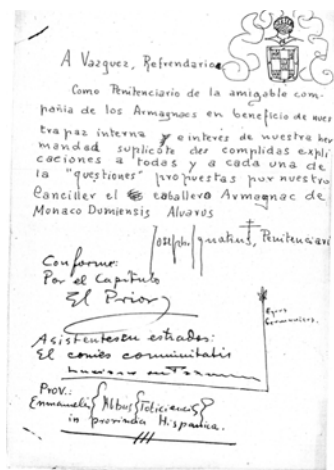 A Vazquez, Refrendario
Como Penitenciario de la amigable com-
pañia de los Armagnacs en beneficio de nues
tra paz interna y e interés de nuestra her
mandad suplicote des complidas expli
caciones a todas y a cada una de
la "questiones" propuestas por nuestro
Canciller el caballero Armagnac de
Monaco Dumiensis Alvarus
Joseph Ignatius, Penitenciari
Conforme:
Por el Capítulo
El Prior
Asistentes en estrados:
El comes communitatis
Prov.:
Emmanelis Abbus
in provincia Hispanica.